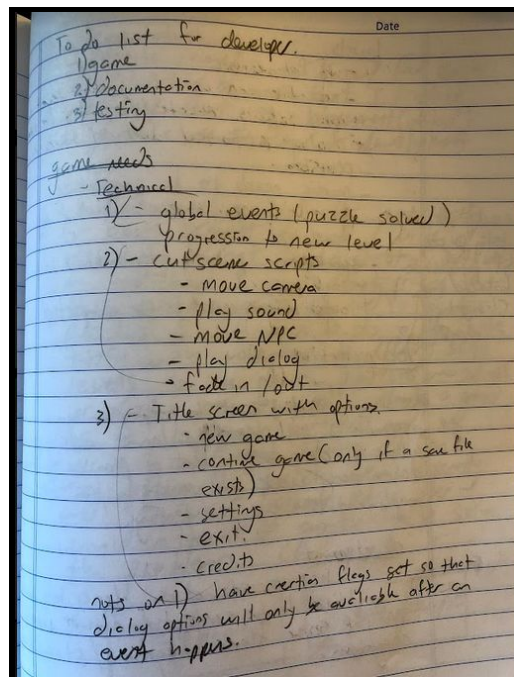 Date
To do list for developer.
1) game
2) documentation
3) testing
game needs
- Technical
1) - global events (puzzle solved)
progression to new level
2) - cut scene scripts
- move camera
- play sound
- move NPC
- play dialog
- fade in / out
3) - Title screen with options.
- new game
- contine game (only if a save file
exists)
- settings
- exit.
- credits
nots on 1) have creation flags set so that
dialog options will only be available after an
event happens.